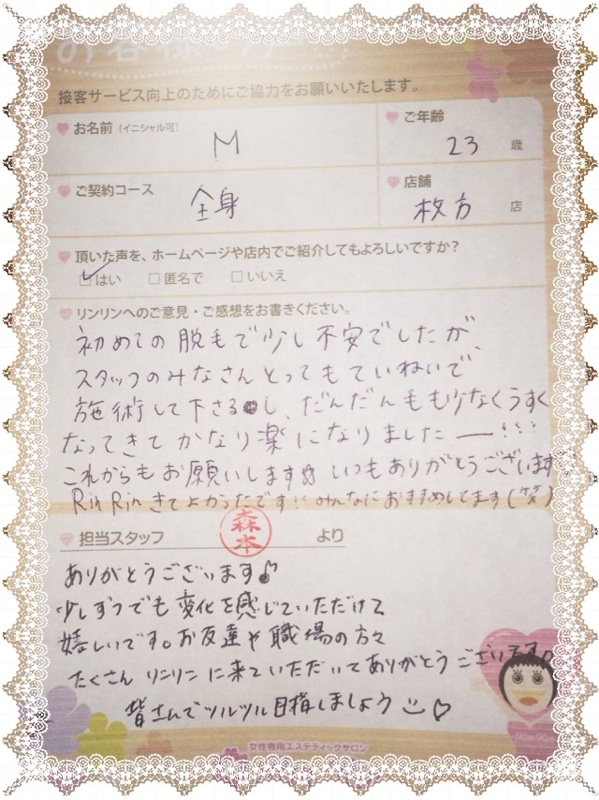 お客様の声
接客サービス向上のためにご協力をお願いいたします。
お名前 (イニシャル可) M
ご年齢 23 歳
ご契約コース 全身
店舗 枚方 店
頂いた声を、ホームページや店内でご紹介してもよろしいですか？
はい 匿名で いいえ
リンリンへのご意見・ご感想をお書きください。
初めての脱毛で少し不安でしたが、
スタッフのみなさんとってもていねいで
施術して下さるし、だんだん毛も少なくうすく
なってきてかなり楽になりましたー!!!
これからもお願いします いつもありがとうございます
RinRinきてよかったです!! みんなにおすすめしてます(笑)
担当スタッフ 森本 より
ありがとうございます♪
少しずつでも変化を感じていただけて
嬉しいです。お友達や職場の方々
たくさんリンリンに来ていただいてありがとうございます♪
皆さんでツルツル目指しましょう ♡
RinRin
女性専用エステティックサロン